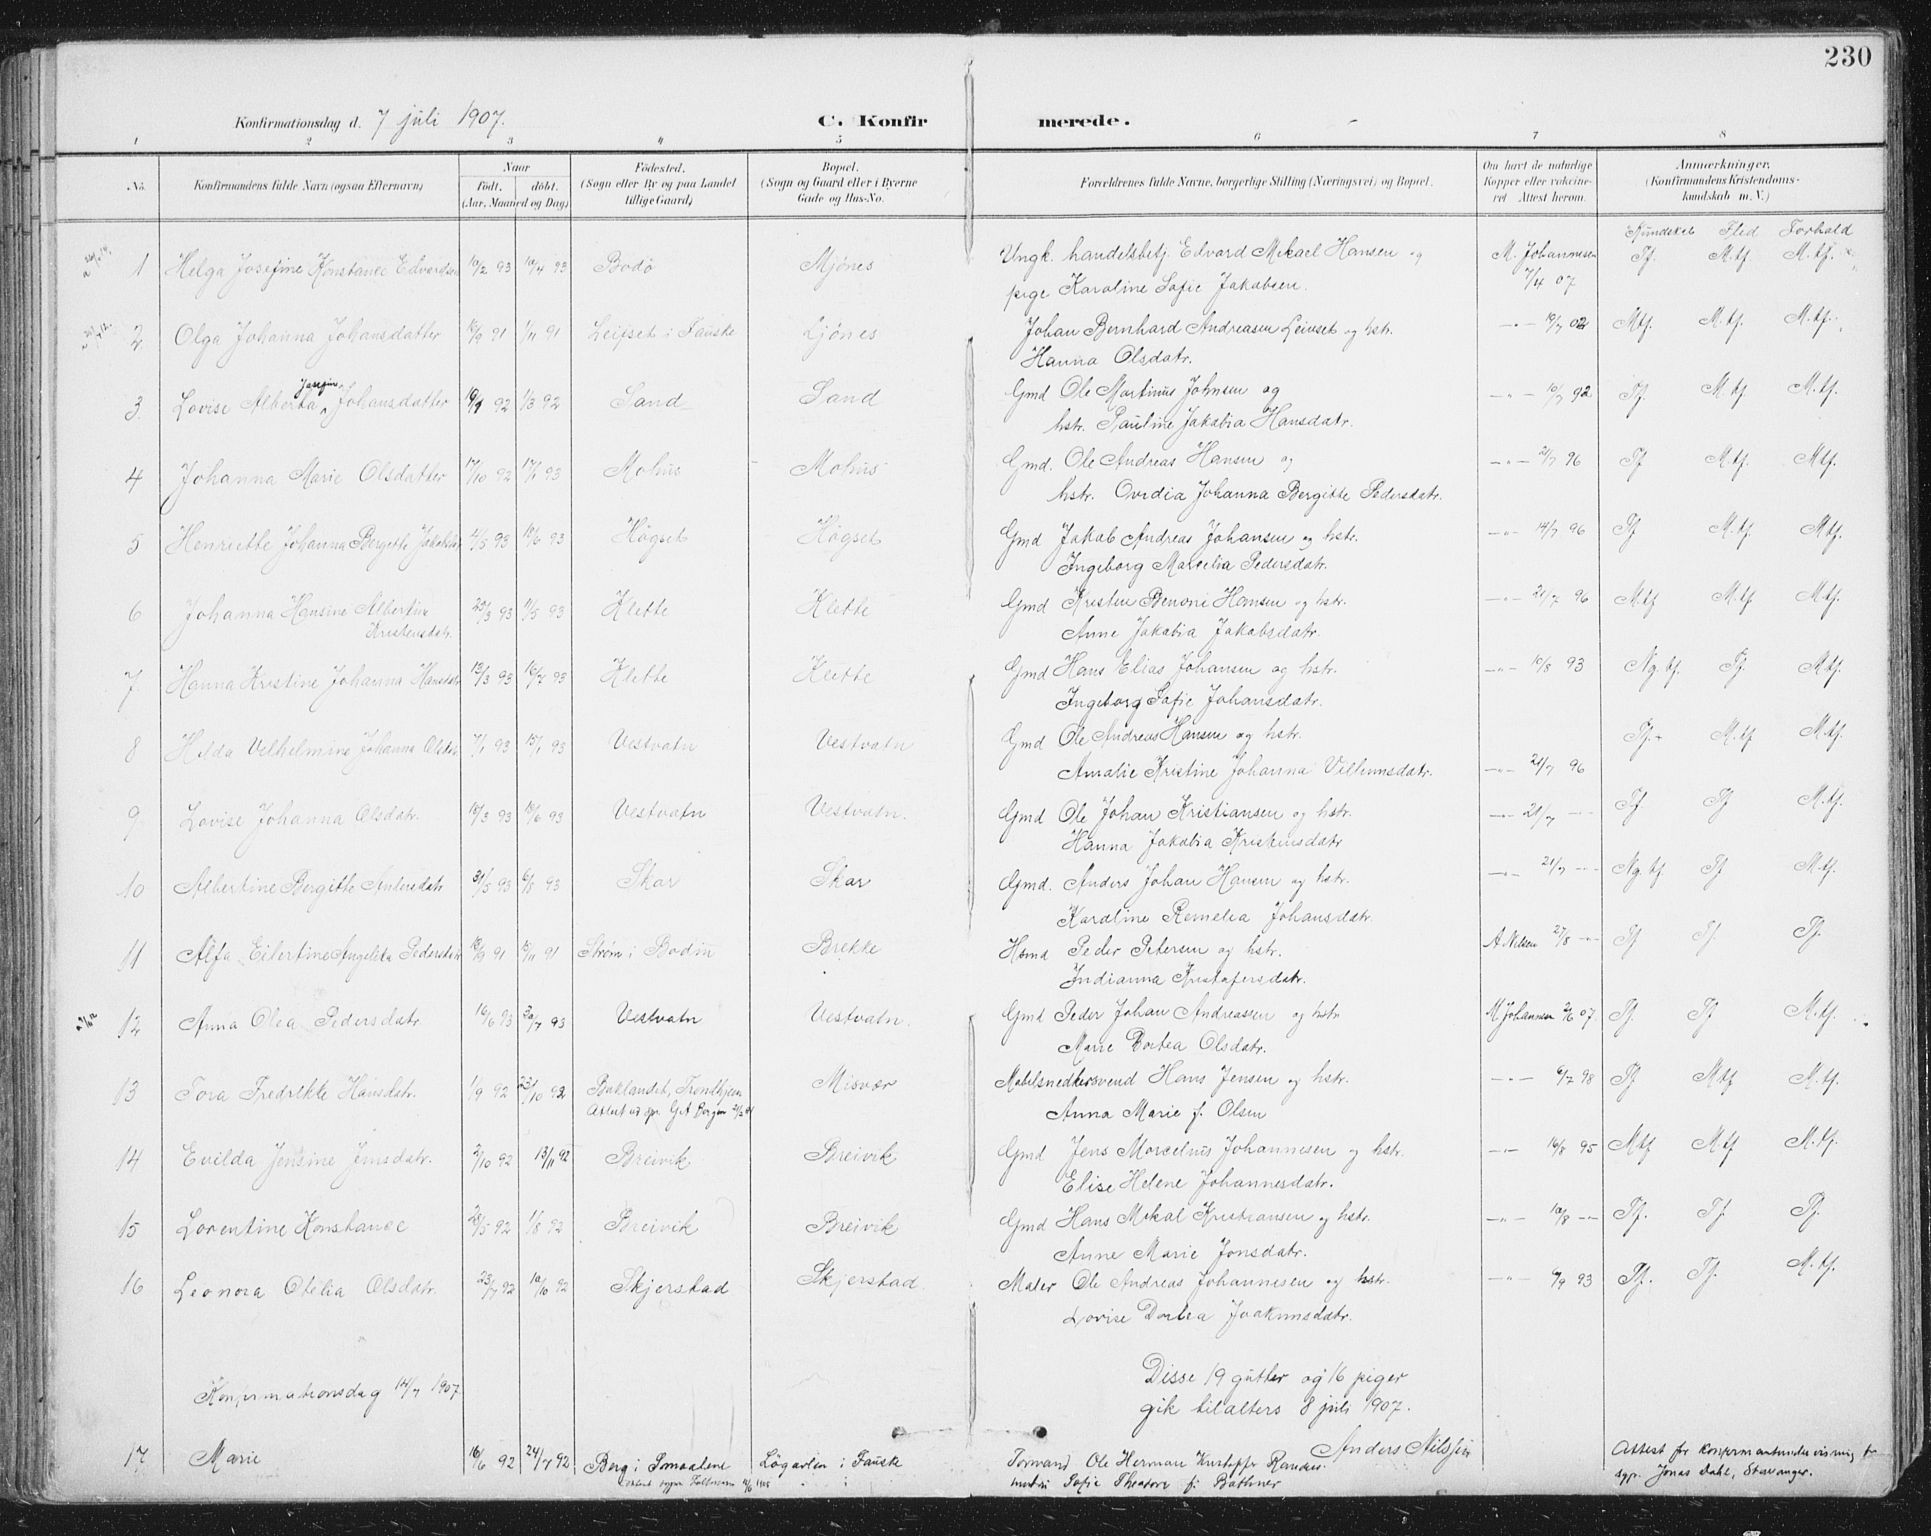 230
Konfirmationsdag d. 7 juli 1907. C. Konfirmerede.
1 2 3 4 5 6 7 8
No. Konfirmandens fulde Navn (ogsaa Efternavn) Naar født. døbt. (Aar, Maaned og Dag) Fødested. (Sogn eller By og paa Landet tillige Gaard) Bopæl. (Sogn og Gaard eller i Byerne Gade og Hus-No. Forældrenes fulde Navne, borgerlige Stilling (Næringsvei) og Bopæl. Om havt de naturlige Kopper eller vakcineret. Attest herom. Anmærkninger. (Konfirmandens Kristendomskundskab m. V.)
Kundskab Flid Forhold
1 Helga Josefine Konstance Edvardsen 10/2 93 10/4 93 Bodö Mjönes Ungk. handelsbetj. Edvard Mikael Hansen og M. Johannesen Tf. M.tf. M.tf.
pige Karoline Sofie Jakobsen. 7/4 07
2 Olga Johanna Johansdatter 10/9 91 1/11 91 Leifset i Fauske Ljönes Johan Bernhard Andreasen Leivset og hstr. -"- 10/7 02 Mtf. M.tf. M.tf.
Hanna Olsdatr.
Josefine
3 Lovise Alberta Johansdatter 92 1/3 92 Sand Sand Gmd Ole Martinus Johnsen og -"- 10/7 92 Tf. M.tf. M.tf.
hstr. Pauline Jakobia Hansdatr.
4 Johanna Marie Olsdatter 17/10 92 17/1 93 Mohus Mohus Gmd. Ole Andreas Hansen og -"- 21/7 96 Tf M.tf. Mtf.
hstr. Ovidia Johanna Bergitte Pedersdatr.
5 Henriette Johanna Bergitte Jakobsd 4/5 93 18/6 93 Högset Högset Gmd Jakob Andreas Johansen og hstr. -"- 14/7 96 Tf M.tf. Mtf.
Ingeborg Marselia Pedersdatr.
6 Johanna Hansine Albertine 25/3 93 11/5 93 Klette Klette Gmd Kristen Benoni Hansen og hstr. -"- 21/7 96 M.tf M.tf M.tf.
Kristensdatr. Anne Jakobia Jakobsdatr.
7 Hanna Kristine Johanna Hansdatr 13/3 93 16/7 93 Klette Klette Gmd Hans Elias Johansen og hstr. -"- 10/8 93 Ng.tf. Tf. Mtf.
Ingeborg Sofie Johansdatr.
8 Hilda Vilhelmine Johanna Olsdtr 7/1 93 15/1 93 Vestvatn Vestvatn Gmd Ole Andreas Hansen og hstr. Tf. M.tf M.tf.
Amalie Kristine Johanna Vilhumsdatr. -"- 21/7 96
9 Lovise Johanna Olsdatr. 18/3 93 18/6 93 Vestvatn Vestvatn. Gmd Ole Johan Kristiansen og hstr. -"- 21/7 -"- Tf Tf M.tf.
Hanna Jakobia Kristensdatr
10 Albertine Bergitte Andersdatr 31/5 93 6/8 93 Skar Skar Gmd. Anders Johan Hansen og hstr. -"- 21/7 -"- Ng.tf. Tf M.tf.
Karoline Remelea Johansdatr.
11 Alfa Eilertine Angelika Pedersdatr 18/9 91 15/11 91 Ström i Bodin Brekke Hsmd Peder Petersen og hstr. A Nilsen 27/8 -"- Tf Tf. Tf.
Indianna Kristofersdatr.
12 Anna Olea Pedersdatr 16/6 93 30/7 93 Vestvatn Vestvatn. Gmd Peder Johan Andreassen og hstr M Johannesen 2/6 07. Tf. Tf M.tf.
Marie Dortea Olsdatr.
13 Tora Fredrikke Hansdatr. 1/9 92 23/10 92 Baklandet, Trondhjem Misvær Møbelsnedkersvend Hans Jensen og hstr. -"- 6/7 98 Tf Mtf M.tf.
Attest Bergen Anna Marie f. Olsen
14 Evilda Jensine Jensdatr. 2/10 92 13/11 92 Breivik Breivik Gmd Jens Marcelius Johannesen og hstr. -"- 16/8 95 Mtf M.tf M.tf.
Elise Helene Johannesdatr.
15 Lorentine Konstance 28/5 92 1/8 92 Breivik Breivik Gmd Hans Mikal Kristiansen og hstr. -"- 10/8 -"- Tf. Tf. Tf.
Anne Marie Jonsdatr.
16 Leonora Otelia Olsdatr. 23/7 92 10/10 92 Skjerstad Skjerstad Maler Ole Andreas Johannesen og hstr. -"- 9/9 93 Tf. Tf. M.tf.
Lovise Dortea Joakimsdatr.
Konfirmationsdag 14/7 1907. Disse 19 gutter og 16 piger
gik til alters 8 juli 1907.
Anders Nilssen
17 Marie 16/6 92 24/7 92 Berg i Smaalene Løgavlen i Fauske Formand Ole Herman Kristoffer Attest for konfirmantundervisning fr
Sofie Theodore f. sgpr. Jonas Dahl, Stavanger.